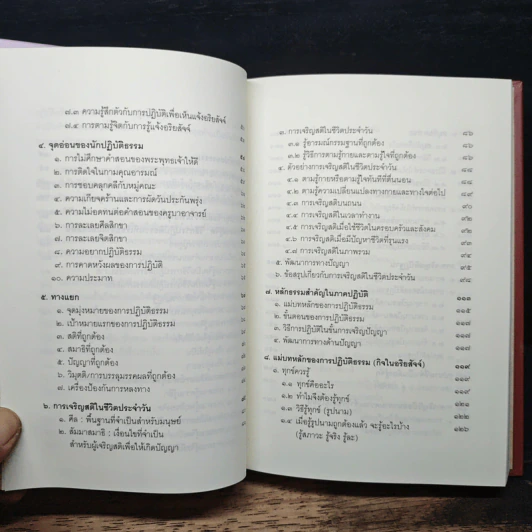 ๓.๓ ความรู้สึกตัวกับการปฏิบัติเพื่อเห็นแจ้งอริยสัจจ์
๓.๔ การตามรู้จิตกับการรู้แจ้งอริยสัจจ์
๔. จุดอ่อนของนักปฏิบัติธรรม
๑. การไม่ศึกษาคำสอนของพระพุทธเจ้าให้ดี
๒. การติดใจในตามคุณอารมณ์
๓. การชอบคลุกคลีกับหมู่คณะ
๔. ความเกียจคร้านและการผัดวันประกันพรุ่ง
๕. ความไม่อดทนต่อคำสอนของครูบาอาจารย์
๖. การละเลยศีลสิกขา
๗. การละเลยจิตสิกขา
๘. ความอยากปฏิบัติธรรม
๙. การคาดหวังผลของการปฏิบัติ
๑๐. ความประมาท
๕. ทางแยก
๑. จุดมุ่งหมายของการปฏิบัติธรรม
๒. เป้าหมายแรกของการปฏิบัติธรรม
๓. สติที่ถูกต้อง
๔. สมาธิที่ถูกต้อง
๕. ปัญญาที่ถูกต้อง
๖. วิมุตติ/การบรรลุมรรคผลที่ถูกต้อง
๗. เครื่องป้องกันการหลงทาง
๖. การเจริญสติในชีวิตประจำวัน
๑. ศีล : พื้นฐานที่จำเป็นสำหรับมนุษย์
๒. สัมมาสมาธิ : เงื่อนไขที่จำเป็น
สำหรับผู้เจริญสติเพื่อให้เกิดปัญญา
๓. การเจริญสติในชีวิตประจำวัน ๘๖
๓.๑ รู้อารมณ์กรรมฐานที่ถูกต้อง
๓.๒ รู้วิธีการตามรู้กายและตามรู้ใจที่ถูกต้อง
๔. ตัวอย่างการเจริญสติในชีวิตประจำวัน
๔.๑ ตามรู้กายหรือตามรู้ใจทันทีที่ตื่นนอน
๔.๒ ตามรู้ความเปลี่ยนแปลงทางกายและทางใจต่อไป
๔.๓ การเจริญสติบนถนน
๔.๔ การเจริญสติในเวลาทำงาน
๔.๕ การเจริญสติเมื่อใช้ชีวิตในครอบครัวและสังคม
๔.๖ การเจริญสติเมื่อมีปัญหาชีวิตที่รุนแรง
๔.๗ การเจริญสติในภาพรวม
๕. พัฒนาการทางปัญญา ๙๕
๖. ข้อสรุปเกี่ยวกับการเจริญสติในชีวิตประจำวัน ๙๘
๗. หลักธรรมสำคัญในภาคปฏิบัติ
๑. แม่บทหลักของการปฏิบัติธรรม ๑๑๕
๒. ขั้นตอนของการปฏิบัติธรรม
๓. วิธีการปฏิบัติในขั้นการเจริญปัญญา
๔. พัฒนาการทางด้านปัญญา ๑๑๘
๘. แม่บทหลักของการปฏิบัติธรรม (กิจในอริยสัจจ์) ๑๑๙
๑. ทุกข์ควรรู้
๑.๑ ทุกข์คืออะไร
๑.๒ ทำไมจึงต้องรู้ทุกข์
๑.๓ วิธีรู้ทุกข์ (รูปนาม) ๑๒๒
๑.๔ เมื่อรู้รูปนามถูกต้องแล้ว จะรู้อะไรบ้าง ๑๒๖
(รู้สภาวะ รู้จริง รู้ละ)